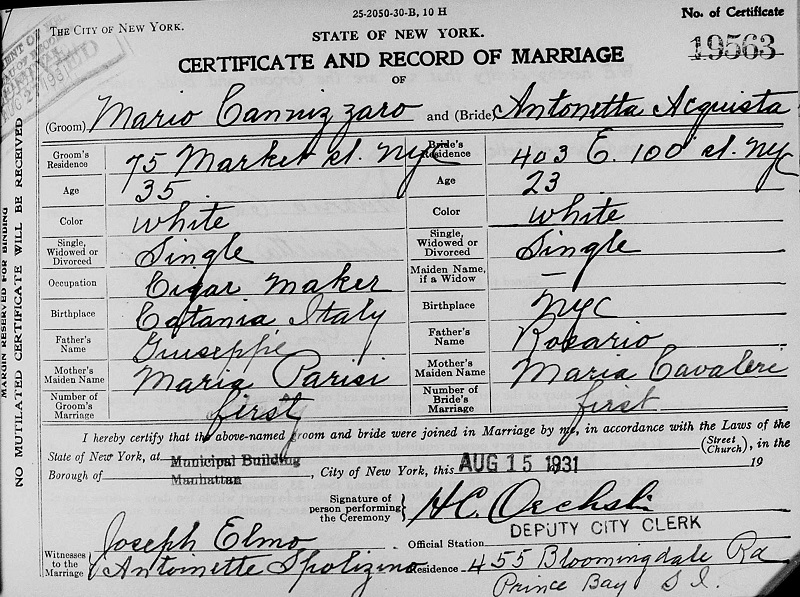 25-2050-30-B, 10 H
No. of Certificate
THE CITY OF NEW YORK.
STATE OF NEW YORK.
19563
CERTIFICATE AND RECORD OF MARRIAGE
OF
(Groom) Mario Cannizzaro and (Bride) Antonetta Acquista
Groom's Residence 75 Market st. NYC Bride's Residence 403 E. 100 st. NYC
Age 35 Age 23
Color White Color White
Single, Widowed or Divorced Single Single, Widowed or Divorced Single
Occupation Cigar Maker Maiden Name, if a Widow —
Birthplace Catania Italy Birthplace NYC
Father's Name Giuseppe Father's Name Rosario
Mother's Maiden Name Maria Parisi Mother's Maiden Name Maria Cavaleri
Number of Groom's Marriage first Number of Bride's Marriage first
I hereby certify that the above-named groom and bride were joined in Marriage by me, in accordance with the Laws of the
State of New York, at Municipal Building (Street Church), in the
Borough of Manhattan, City of New York, this AUG 15 1931 19
Signature of person performing the Ceremony H.C.
DEPUTY CITY CLERK
Witnesses to the Marriage Joseph Elmo Official Station
Antoinette Spolizino Residence 455 Bloomingdale Rd
Prince Bay S I.
MARGIN RESERVED FOR BINDING
NO MUTILATED CERTIFICATE WILL BE RECEIVED